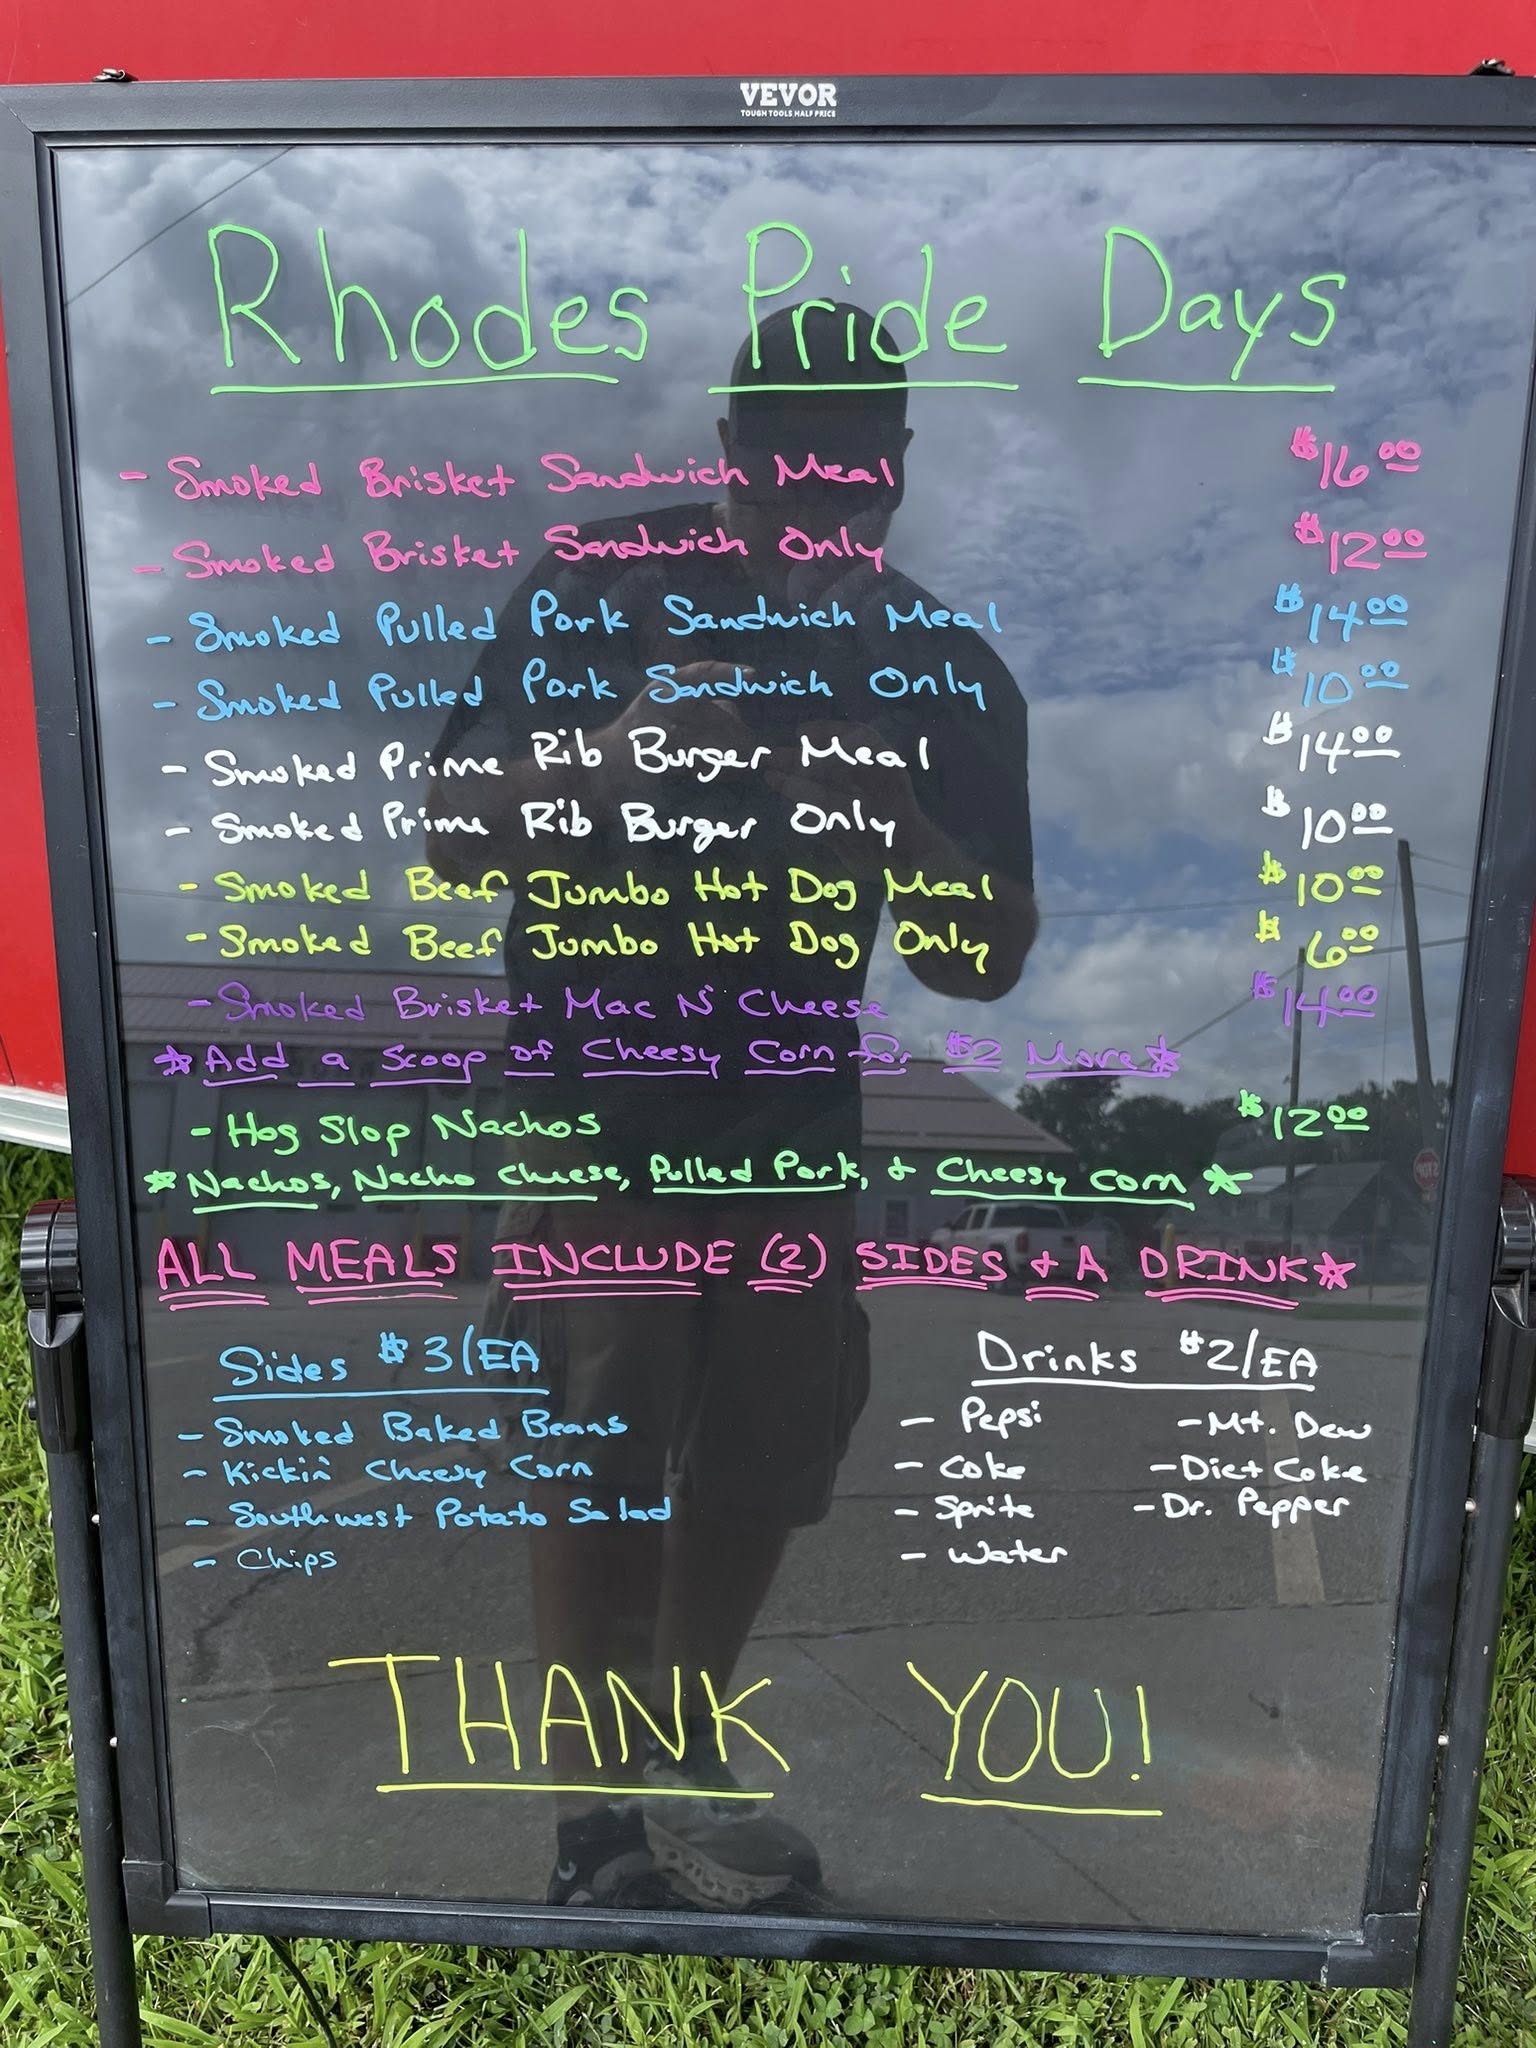 VEVOR
TOUGH TOOLS HALF PRICE
Rhodes Pride Days
- Smoked Brisket Sandwich Meal $16.00
- Smoked Brisket Sandwich Only $12.00
- Smoked Pulled Pork Sandwich Meal $14.00
- Smoked Pulled Pork Sandwich Only $10.00
- Smoked Prime Rib Burger Meal $14.00
- Smoked Prime Rib Burger Only $10.00
- Smoked Beef Jumbo Hot Dog Meal $10.00
- Smoked Beef Jumbo Hot Dog Only $6.00
- Smoked Brisket Mac N' Cheese $14.00
☆ Add a Scoop of Cheesy Corn for $2 More ☆
- Hog Slop Nachos $12.00
☆ Nachos, Nacho Cheese, Pulled Pork, + Cheesy Corn ☆
ALL MEALS INCLUDE (2) SIDES + A DRINK ☆
Sides $3/EA
- Smoked Baked Beans
- Kickin' Cheesy Corn
- Southwest Potato Salad
- Chips
Drinks $2/EA
- Pepsi - Mt. Dew
- Coke - Diet Coke
- Sprite - Dr. Pepper
- Water
THANK YOU!